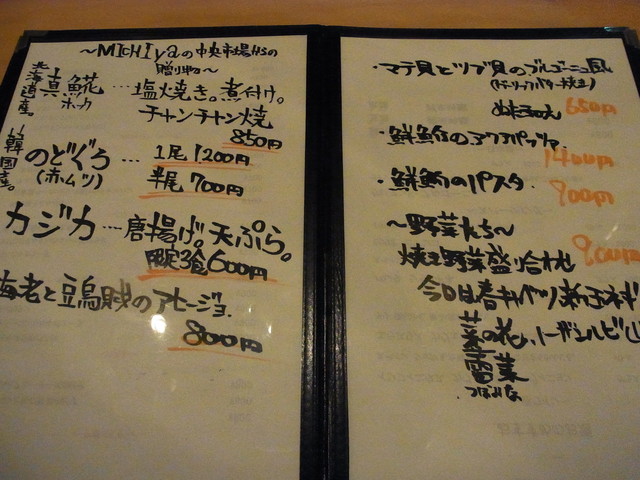 〜MICHIyaの中央市場からの
贈り物〜
北海道産。
真ホッケ…塩焼き。煮付け。
ホッカ
チャンチャン焼
850円
韓国産。
のどぐろ…1尾1200円
(赤ムツ)
半尾700円
カジカ…唐揚げ。天ぷら。
限定3食600円
海老と豆烏賊のアヒージョ.
800円
・マテ貝とツブ貝のブルゴーニュ風
(ガーリックバター焼き)
650円
・鮮魚のアクアパッツァ.
1400円
・鮮魚のパスタ.
900円
〜野菜たち〜
焼き野菜盛り合わせ
900円
今日は春キャベツ、新玉ネギ
菜の花、トーチェルビ
蕾菜
つぼみな